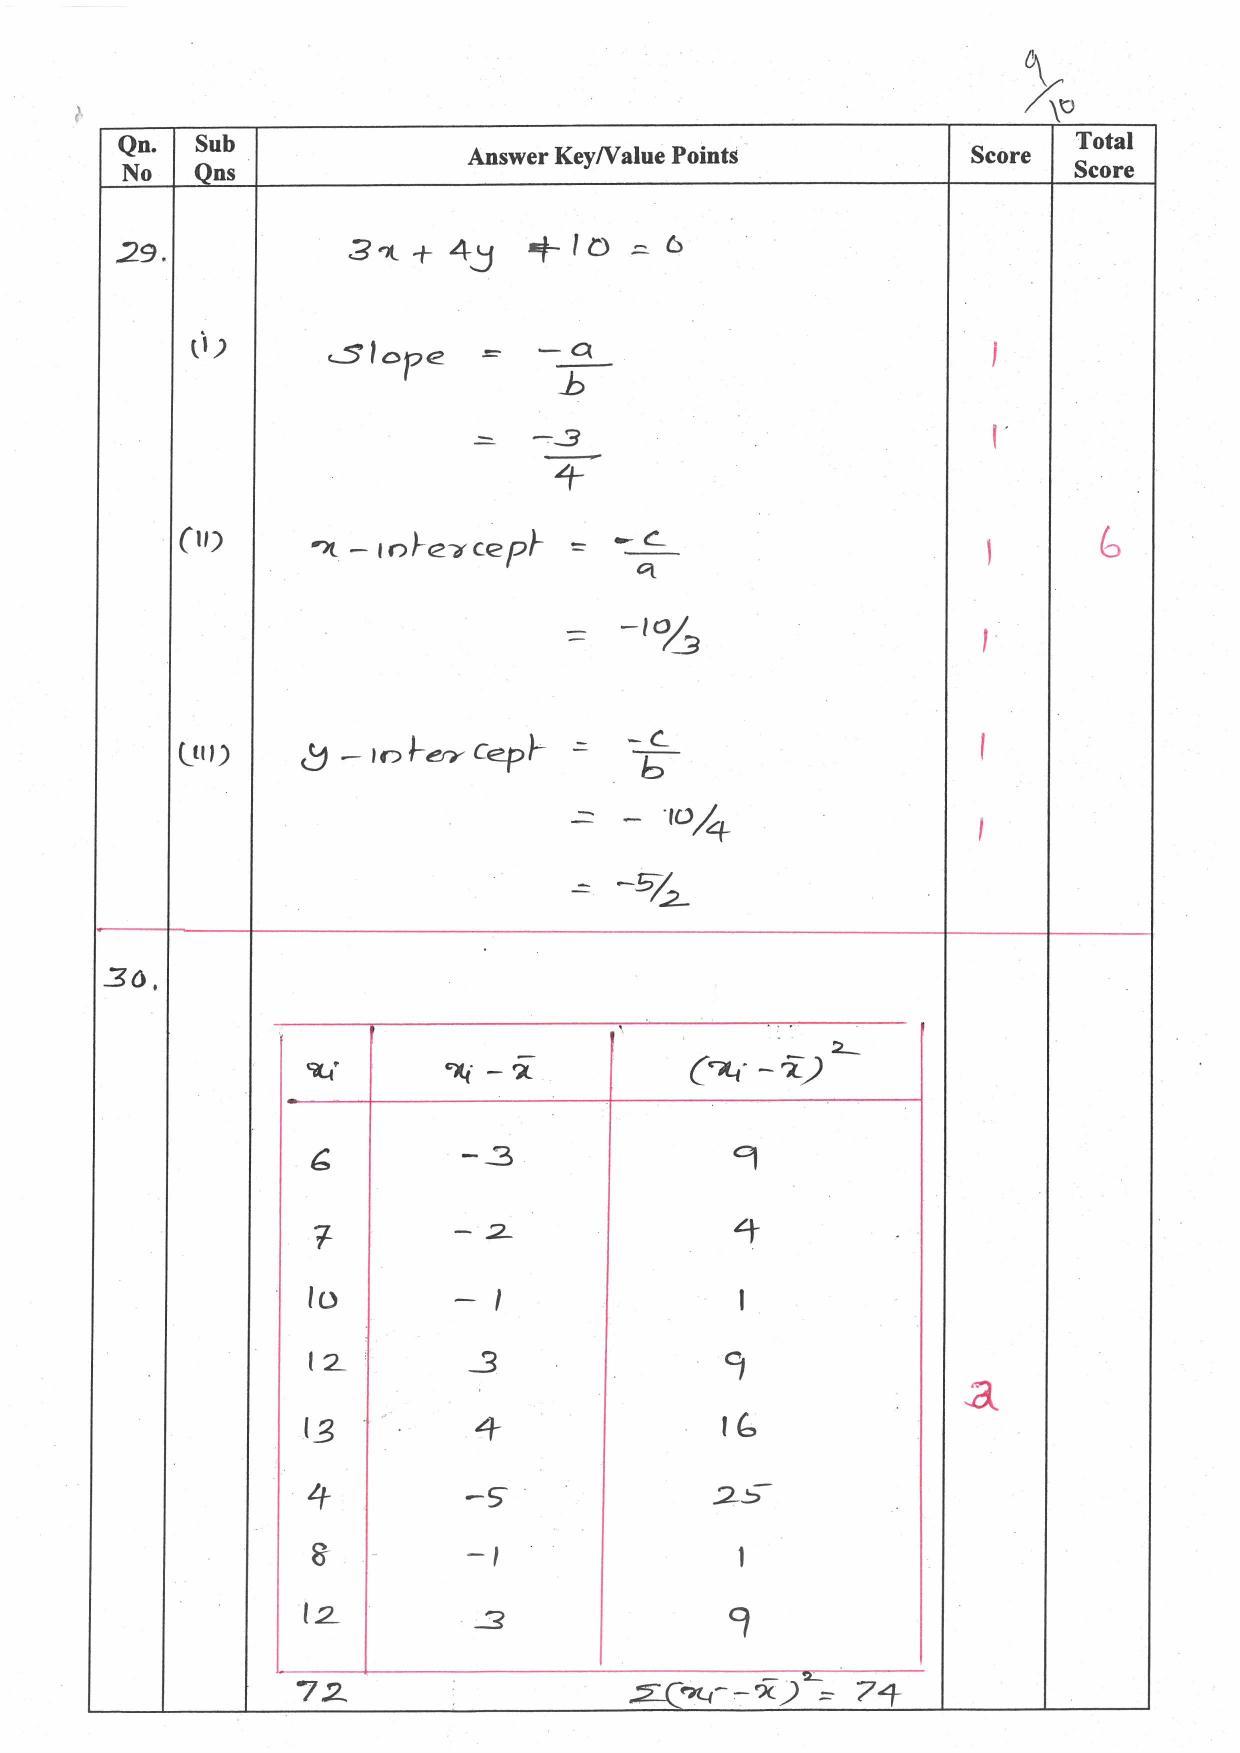 9/10
Qn. No Sub Qns Answer Key/Value Points Score Total Score
29. 3x + 4y + 10 = 0
(i) Slope = -a/b 1
= -3/4 1
(ii) x-intercept = -c/a 1 6
= -10/3 1
(iii) y-intercept = -c/b 1
= - 10/4 1
= -5/2
30.
xi xi - x̄ (xi - x̄)²
6 -3 9
7 -2 4
10 -1 1
12 3 9
13 4 16 2
4 -5 25
8 -1 1
12 3 9
72 Σ(xi - x̄)² = 74